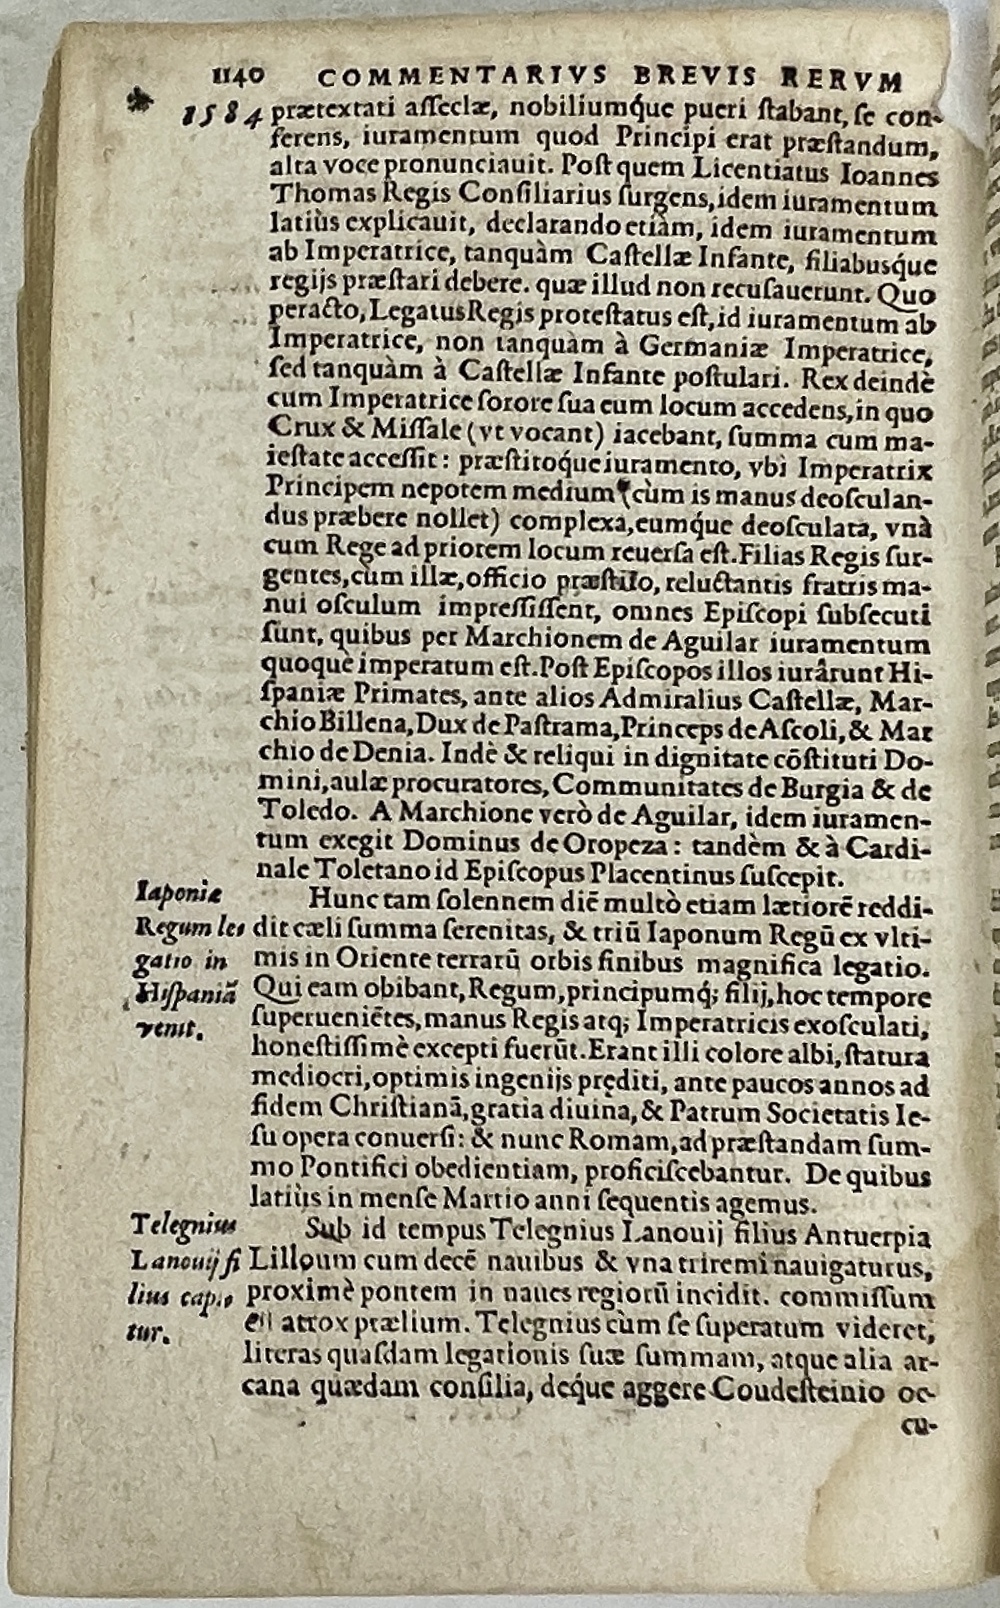 1140 COMMENTARIVS BREVIS RERVM
1584 prætextati aſſeclæ, nobiliumq́ue pueri ſtabant, ſe con-
ferens, iuramentum quod Principi erat præſtandum,
alta voce pronunciauit. Poſt quem Licentiatus Ioannes
Thomas Regis Conſiliarius ſurgens, idem iuramentum
latiùs explicauit, declarando etiàm, idem iuramentum
ab Imperatrice, tanquàm Caſtellæ Infante, filiabusq́ue
regijs præſtari debere. quæ illud non recuſauerunt. Quo
peracto, Legatus Regis proteſtatus eſt, id iuramentum ab
Imperatrice, non tanquàm à Germaniæ Imperatrice,
ſed tanquàm à Caſtellæ Infante poſtulari. Rex deindè
cum Imperatrice ſorore ſua eum locum accedens, in quo
Crux & Miſſale (vt vocant) iacebant, ſumma cum ma-
ieſtate acceſſit: præſtitoq́ue iuramento, vbi Imperatrix
Principem nepotem medium (cùm is manus deoſculan-
dus præbere nollet) complexa, eumq́ue deoſculata, vnà
cum Rege ad priorem locum reuerſa eſt. Filias Regis ſur-
gentes, cùm illæ, officio præſtito, reluctantis fratris ma-
nui oſculum impreſſiſſent, omnes Epiſcopi ſubſecuti
ſunt, quibus per Marchionem de Aguilar iuramentum
quoquè imperatum eſt. Poſt Epiſcopos illos iurârunt Hi-
ſpaniæ Primates, ante alios Admiralius Caſtellæ, Mar-
chio Billena, Dux de Paſtrama, Princeps de Aſcoli, & Mar
chio de Denia. Indè & reliqui in dignitate cōſtituti Do-
mini, aulæ procuratores, Communitates de Burgia & de
Toledo. A Marchione verò de Aguilar, idem iuramen-
tum exegit Dominus de Oropeza: tandèm & à Cardi-
nale Toletano id Epiſcopus Placentinus ſuſcepit.
Iaponiæ
Regum le-
gatio in
Hiſpaniã
venit.
Hunc tam ſolennem diē multò etiam lætiorē reddi-
dit cæli ſumma ſerenitas, & triū Iaponum Regū ex vlti-
mis in Oriente terrarū orbis finibus magnifica legatio.
Qui eam obibant, Regum, principumq́; filij, hoc tempore
ſuperueniētes, manus Regis atq; Imperatricis exoſculati,
honeſtiſſimè excepti fuerūt. Erant illi colore albi, ſtatura
mediocri, optimis ingenijs pręditi, ante paucos annos ad
fidem Chriſtianā, gratia diuina, & Patrum Societatis Ie-
ſu opera conuerſi: & nunc Romam, ad præſtandam ſum-
mo Pontifici obedientiam, proficiſcebantur. De quibus
latiùs in menſe Martio anni ſequentis agemus.
Telegnius
Lanouij fi
lius capi-
tur.
Sub id tempus Telegnius Lanouij filius Antuerpia
Lilloum cum decē nauibus & vna triremi nauigaturus,
proximè pontem in naues regiorū incidit. commiſſum
eſt atrox prælium. Telegnius cùm ſe ſuperatum videret,
literas quaſdam legationis ſuæ ſummam, atque alia ar-
cana quædam conſilia, deq́ue aggere Coudeſteinio oc-
cu-